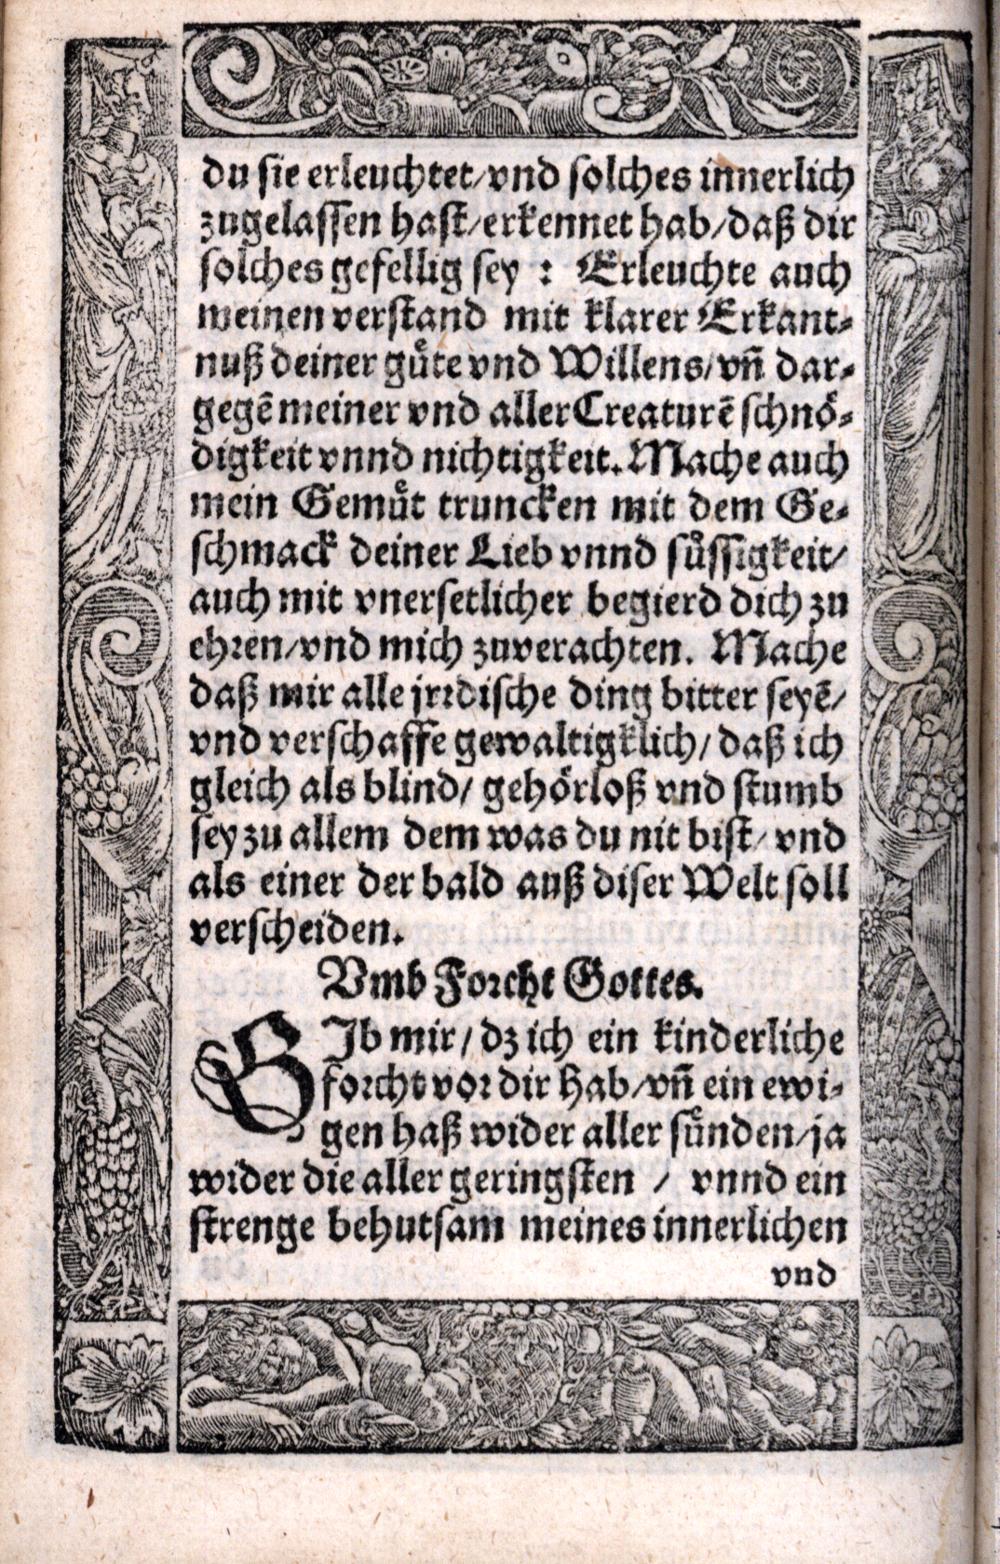 du sie erleuchtet/vnd solches innerlich
zugelassen hast/erkennet hab/daß dir
solches gefellig sey : Erleuchte auch
meinen verstand mit klarer Erkant⸗
nuß deiner guͤte vnd Willens/vn̄ dar⸗
gegē meiner vnd aller Creaturē schnoͤ⸗
digkeit vnnd nichtigkeit. Mache auch
mein Gemuͤt truncken mit dem Ge⸗
schmack deiner Lieb vnnd suͤssigkeit/
auch mit vnersetlicher begierd dich zu
ehren/vnd mich zuverachten. Mache
daß mir alle jrrdische ding bitter seyē/
vnd verschaffe gewaltigklich/daß ich
gleich als blind/ gehoͤrloß vnd stumb
sey zu allem dem was du nit bist/vnd
als einer der bald auß diser Welt soll
verscheiden.
Vmb Forcht Gottes.
GIb mir/dz ich ein kinderliche
forcht vor dir hab/vn̄ ein ewi⸗
gen haß wider aller suͤnden/ja
wider die aller geringsten / vnnd ein
strenge behutsam meines innerlichen
vnd